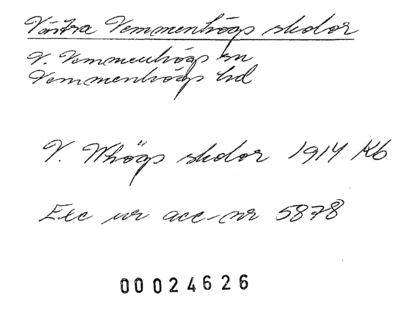 Västra Vemmenhögs skolor
V. Vemmenhögs sn
Vemmenhögs hd
V. Vhögs skolor 1914 Kb
Exc ur acc-nr 5878
00024626